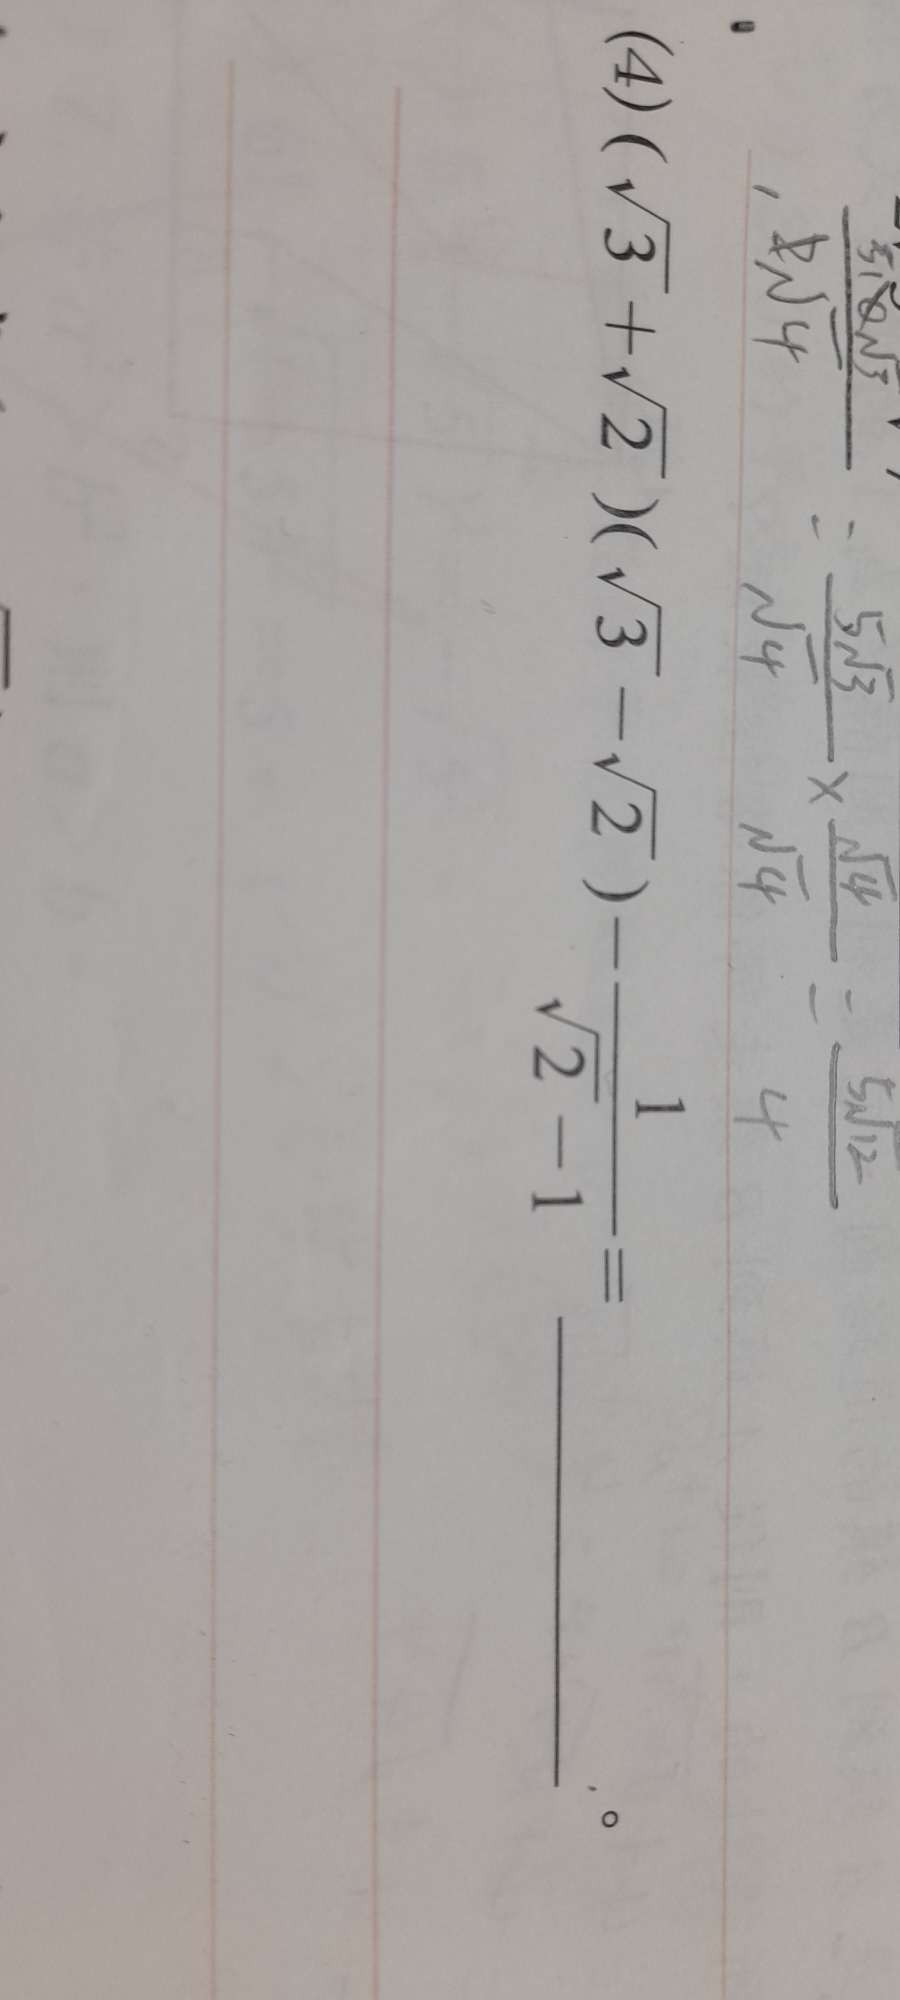 5√3/√4 × √4/√4 = 5√12/4
(4)(√3+√2)(√3−√2)−1/(√2−1)=________。